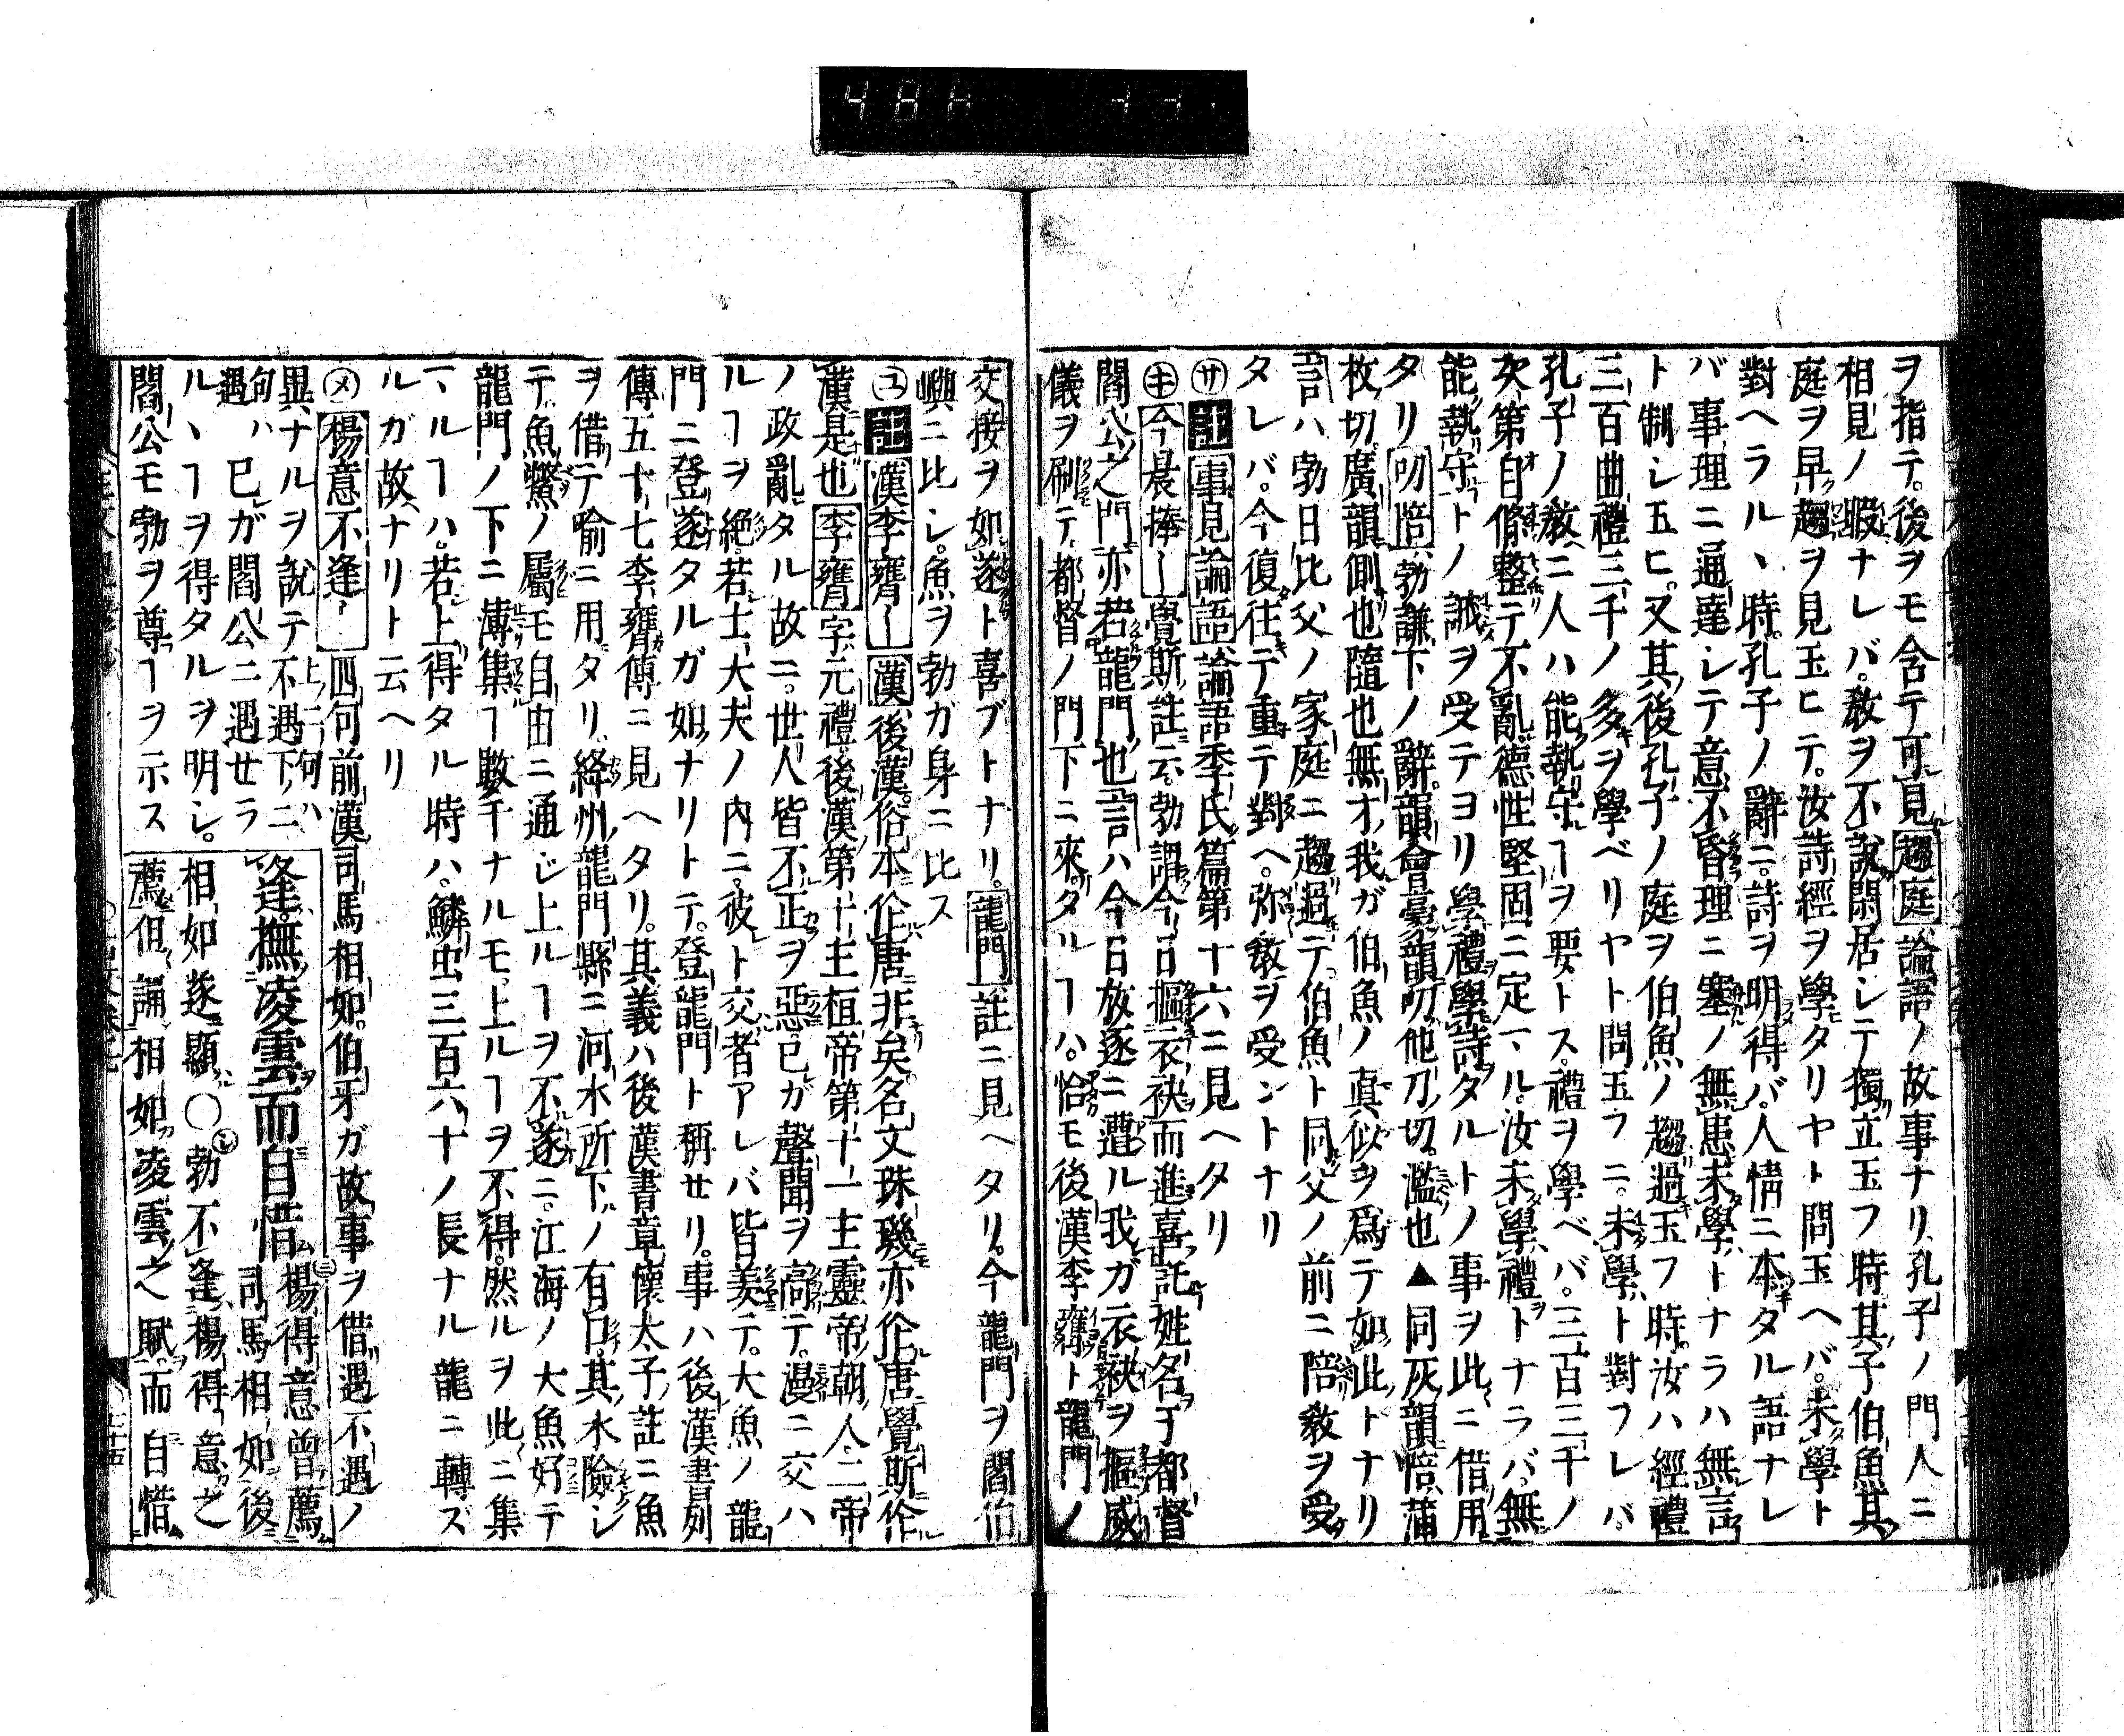 ヲ指テ。後ヲモ含テ可見趨庭論語ノ故事ナリ孔子ノ門人ニ
相見ノ暇ナレバ。敎ヲ不說閑居シテ獨立玉フ時其子伯魚其
庭ヲ早趨ヲ見玉ヒテ。汝詩經ヲ學タリヤト問玉ヘバ。未學ト
對ヘラル、時。孔子ノ辭ニ。詩ヲ明得バ。人情ニ本タル語ナレ
バ事理ニ通達シテ意不昏理ニ塞ノ無患未學トナラハ無言
ト制シ玉ヒ。又其後孔子ノ庭ヲ伯魚ノ趨過玉フ時。汝ハ經禮
三百曲禮三千ノ多ヲ學ベリヤト問玉フニ。未學ト對フレバ。
孔子ノ敎ニ人ハ能執守ヿヲ要トス。禮ヲ學ベバ。三百三千ノ
次第自脩整テ不亂。德性堅固ニ定一、ル。汝未學禮トナラバ。無
能執守トノ誡ヲ受テヨリ學禮學詩タルトノ事ヲ此ニ借用
タリ叨陪勃謙下ノ辭。韻會豪韻叨他刀切。濫也▲同灰韻陪蒲
枚切。廣韻側也隨也無才我ガ伯魚ノ真似ヲ爲テ如此トナリ
言ハ勃日比父ノ家庭ニ趨過テ。伯魚ト同父ノ前ニ陪敎ヲ受
タレバ。今復往テ重テ對ヘ。弥敎ヲ受ントナリ
㋚註事見論語論語季氏篇第十六ニ見ヘタリ
㋖今晨捧〡覺斯註云。勃謂今日摳衣袂而進喜託姓名于都督
閻公之門亦若龍門也言ハ今日放逐ニ遭ル我ガ衣袂ヲ摳威
儀ヲ刷テ。都督ノ門下ニ來タルヿハ。恰モ後漢李膺ト龍門ノ
交接ヲ如遂ト喜ブトナリ。龍門註ニ見ヘタリ。今龍門ヲ閻伯
嶼ニ比シ。魚ヲ勃ガ身ニ比ス
㋴註漢李膺〡漢後漢。俗本作唐非矣。名文珠璣亦作唐覺斯作
漢是也李膺字元禮後漢第十主桓帝第十一主靈帝朝人。二帝
ノ政亂タル故ニ。世人皆不正ヲ惡。己ガ聲聞ヲ高テ。漫ニ交ハ
ルヿヲ絕。若士大夫ノ內ニ。彼ト交者アレバ皆美テ。大魚ノ龍
門ニ登遂タルガ如ナリトテ。登龍門ト稱セリ。事ハ後漢書列
傳五十七李膺傳ニ見ヘタリ。其義ハ後漢書章懷太子註ニ魚
ヲ借テ喩ニ用タリ。絳州龍門縣ニ河水所下ノ有口。其水險シ
テ。魚鱉ノ屬モ自由ニ通ジ上ルヿヲ不遂ニ。江海ノ大魚好テ
龍門ノ下ニ薄集ヿ數千ナルモ。上ルヿヲ不得。然ルヲ此ニ集
一、ルヿハ。若上得タル時ハ。鱗虫三百六十ノ長ナル龍ニ轉ズ
ルガ故ナリト云ヘリ
㋱楊意不逢〡四句前漢司馬相如。伯牙ガ故事ヲ借。遇不遇ノ
異ナルヲ說テ不遇下ニ
上二句ハ
句ハ。已ガ閻公ニ遇セラ
ル、ヿヲ得タルヲ明シ。
閻公モ勃ヲ尊ヿヲ示ス
逢。撫凌雲而自惜。楊得意曾薦
司馬相如後
相如遂顯○勃不逢楊得意之
薦但誦相如凌雲之賦。而自惜